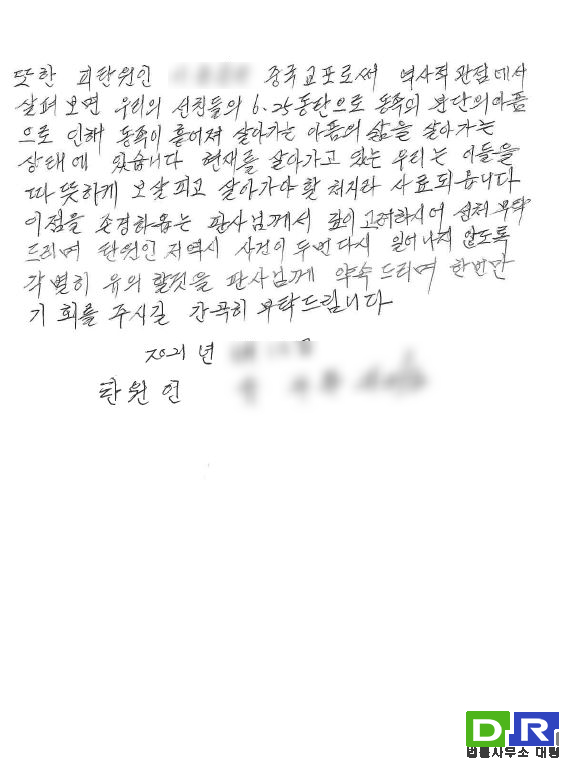 또한 피탄원인 중국교포로써 역사적 관점에서
살펴보면 우리의 선친들의 6.25동란으로 동족의 분단의 아픔
으로 인해 동족이 흩어져 살아가는 아픔의 삶을 살아가는
상태에 있습니다 현재를 살아가고 있는 우리는 이들을
따뜻하게 보살피고 살아가야 할 처지라 사료되옵니다
이점을 존경하옵는 판사님께서 깊이 고려하시어 선처 부탁
드리며 탄원인 저 역시 사건이 두번 다시 일어나지 않도록
각별히 유의 할것을 판사님께 약속 드리며 한번만
기회를 주시길 간곡히 부탁드립니다
2021년
탄원인
DR
법률사무소 대림